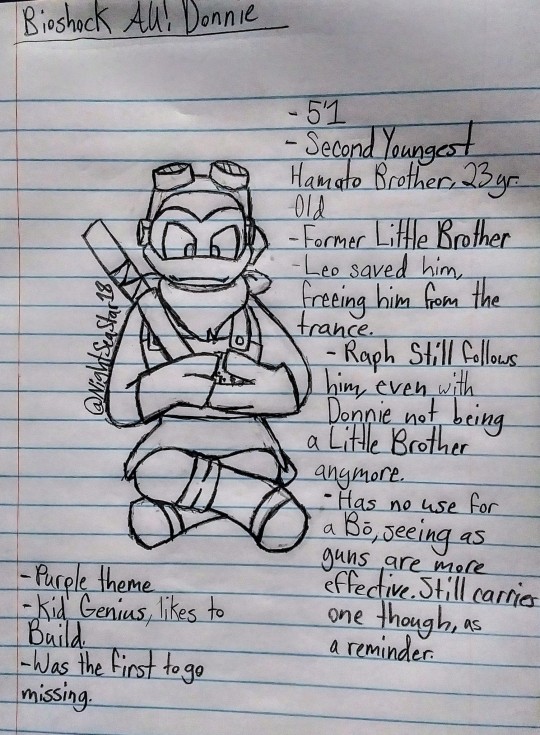 Bioshock AU! Donnie
- 5'1
- Second Youngest
Hamato Brother, 23 yr.
Old
- Former Little Brother
- Leo saved him,
freeing him from the
trance.
- Raph Still follows
him, even with
Donnie not being
a Little Brother
anymore.
- Has no use for
a Bō, seeing as
guns are more
effective. Still carries
one though, as
a reminder.
@NightSeaStar18
- Purple theme
- Kid Genius, likes to
Build.
- Was the first to go
missing.